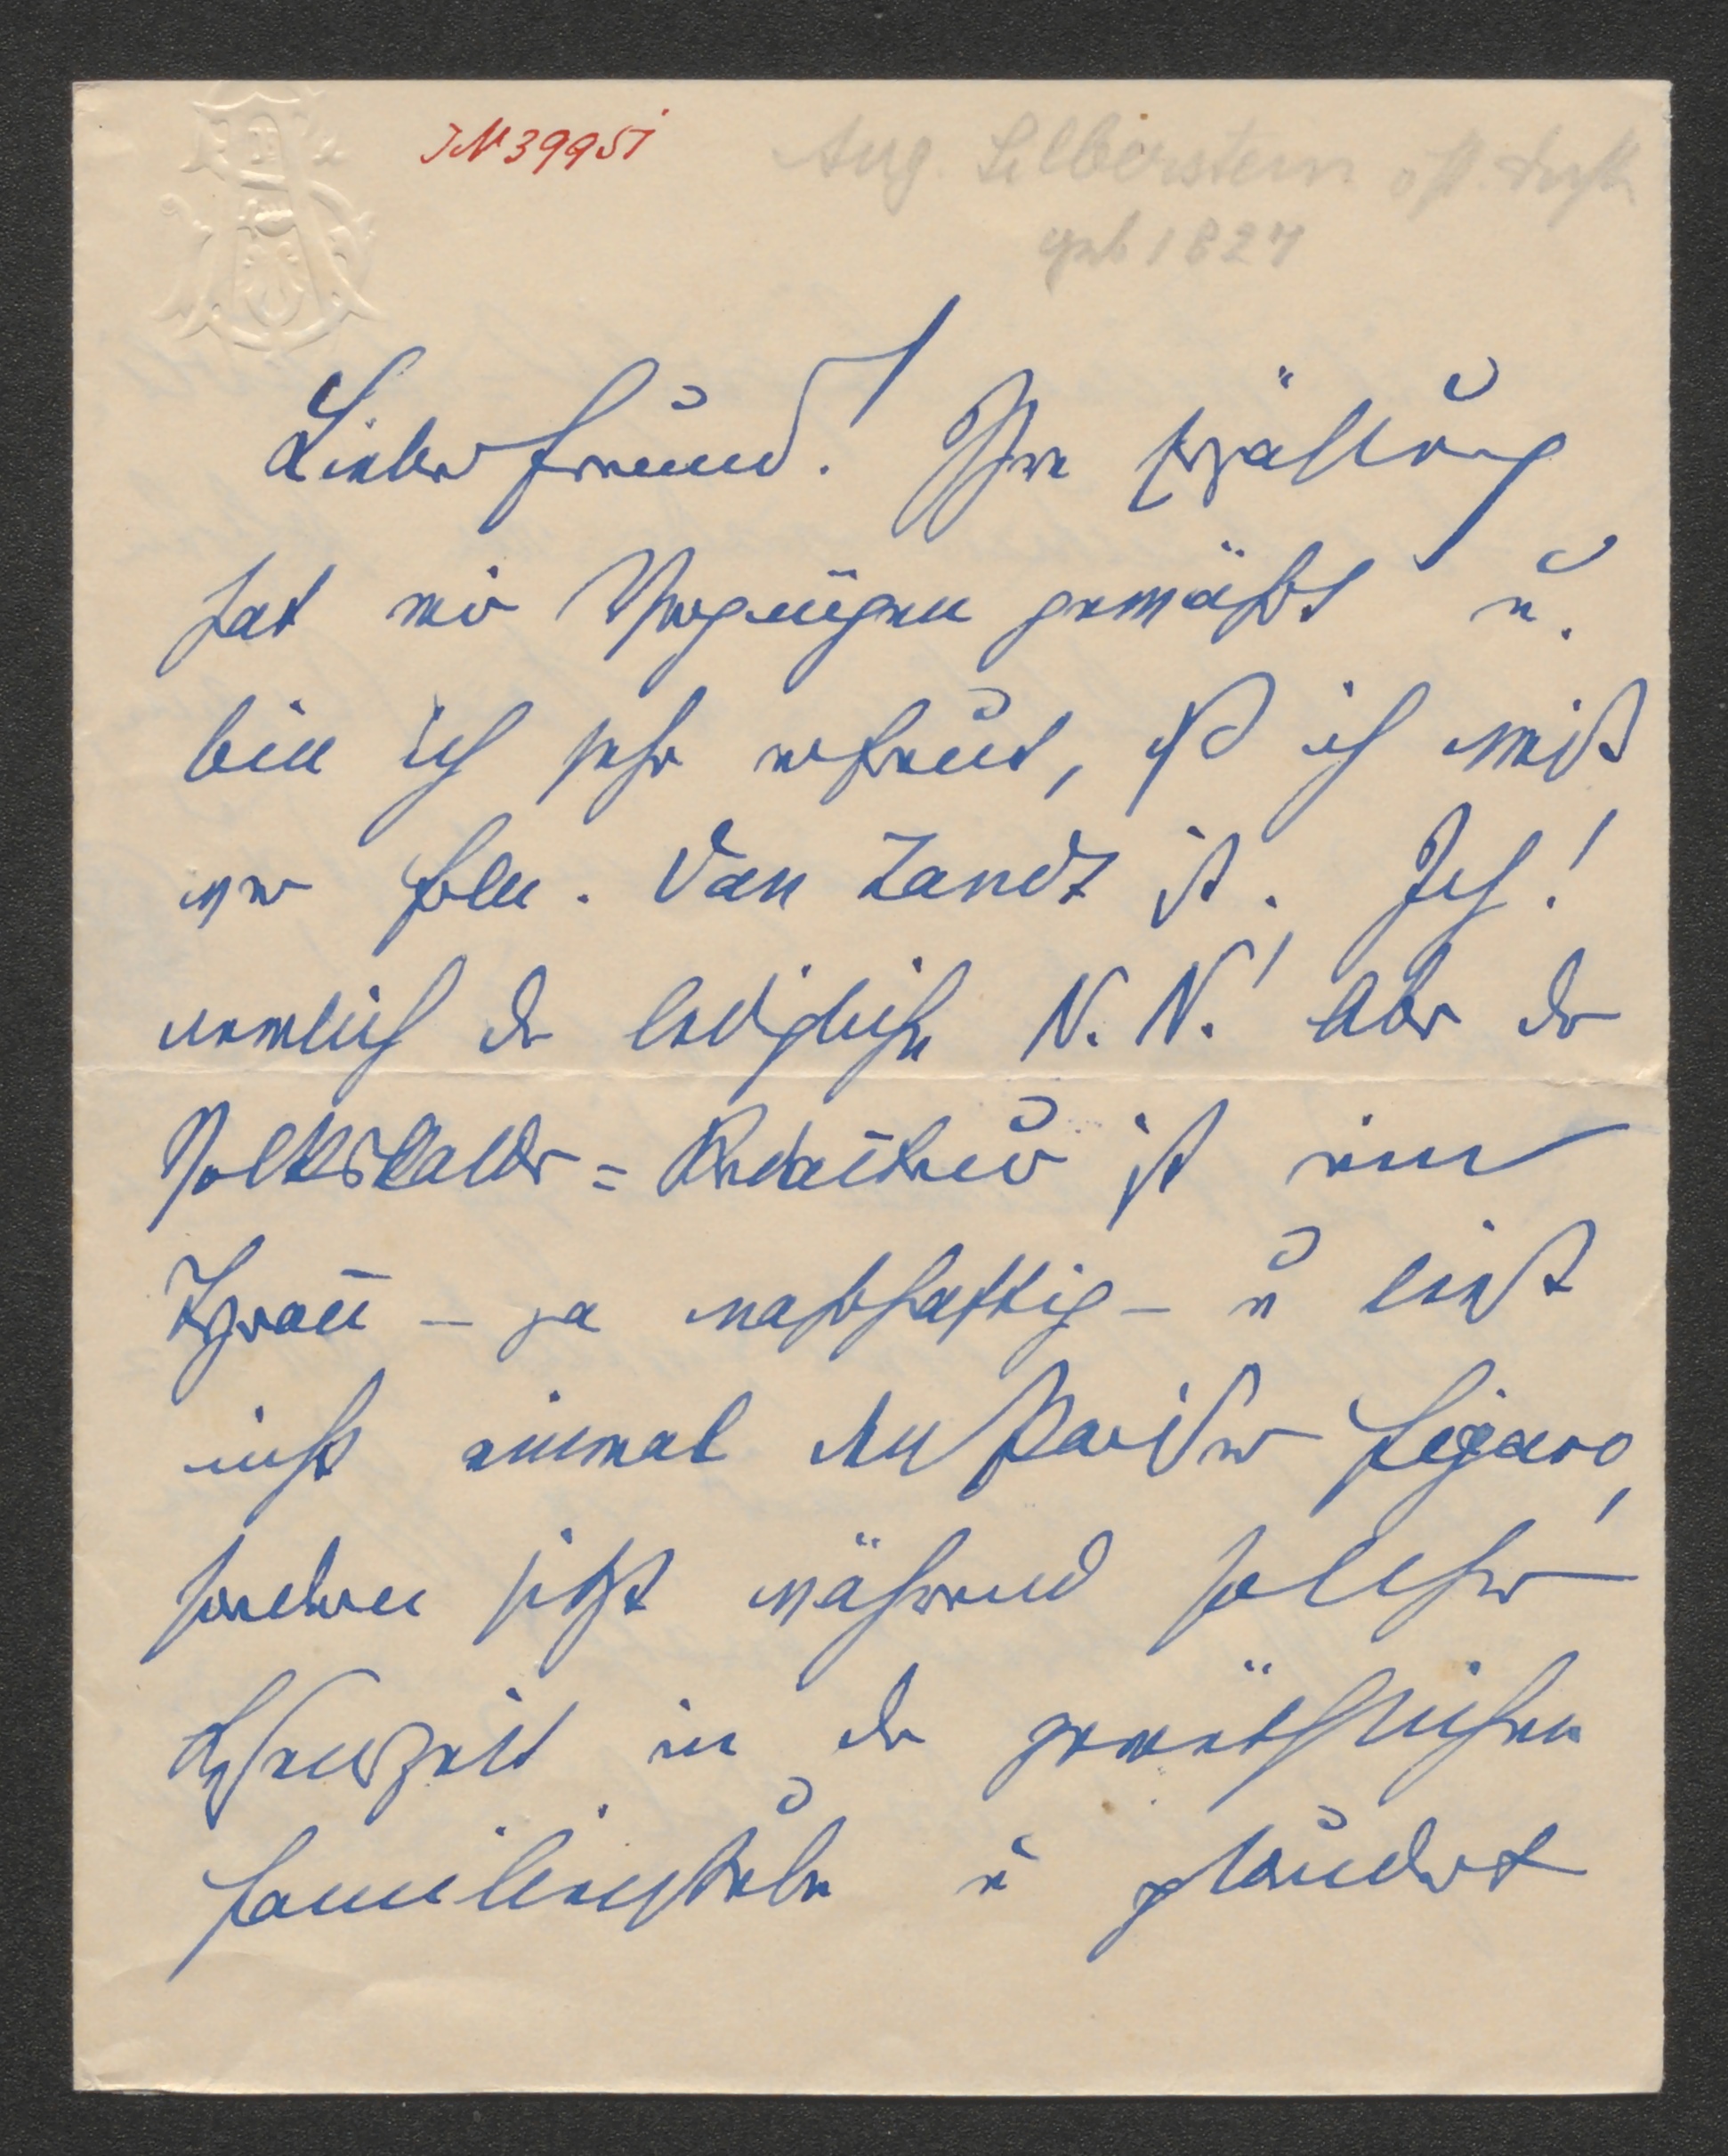 IN 39951
Aug. Silberstein öst. Dicht
geb 1827
Lieber Freund! Ihre Erzählung
hat mir Vergnügen gemacht u.
bin ich sehr erfreut, daß ich weiß
wer Frln. Van Zandt ist. Ich!
nemlich der ledigliche N. N.! Aber der
Volkskalder=Redakteur ist ein
Tyrañ – ja wahrhaftig – u liest
nicht einmal den Pariser Figaro,
sondern sitzt während solcher
Thenzeit in der gemüthlichen
Familienstube u plaudert